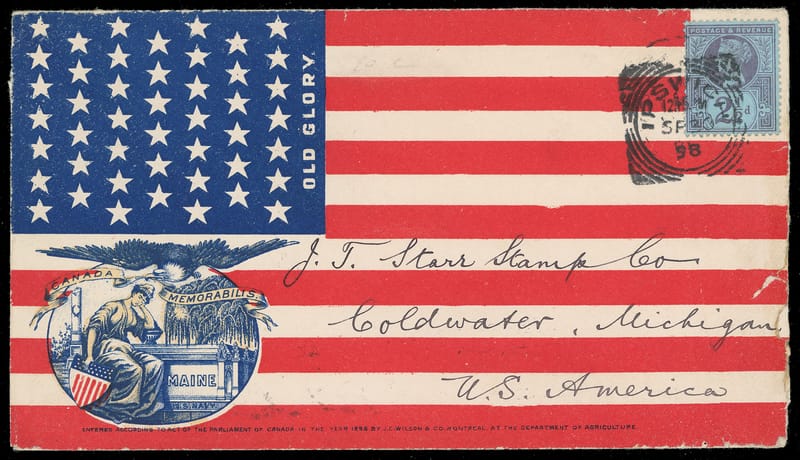 OLD GLORY.
POSTAGE & REVENUE
IPSW
SP
98
CANADA
MEMORABILIS
MAINE
J. T. Starr Stamp Co
Coldwater, Michigan
U.S. America
ENTERED ACCORDING TO ACT OF THE PARLIAMENT OF CANADA IN THE YEAR 1898 BY J.C. WILSON & CO. MONTREAL, AT THE DEPARTMENT OF AGRICULTURE.